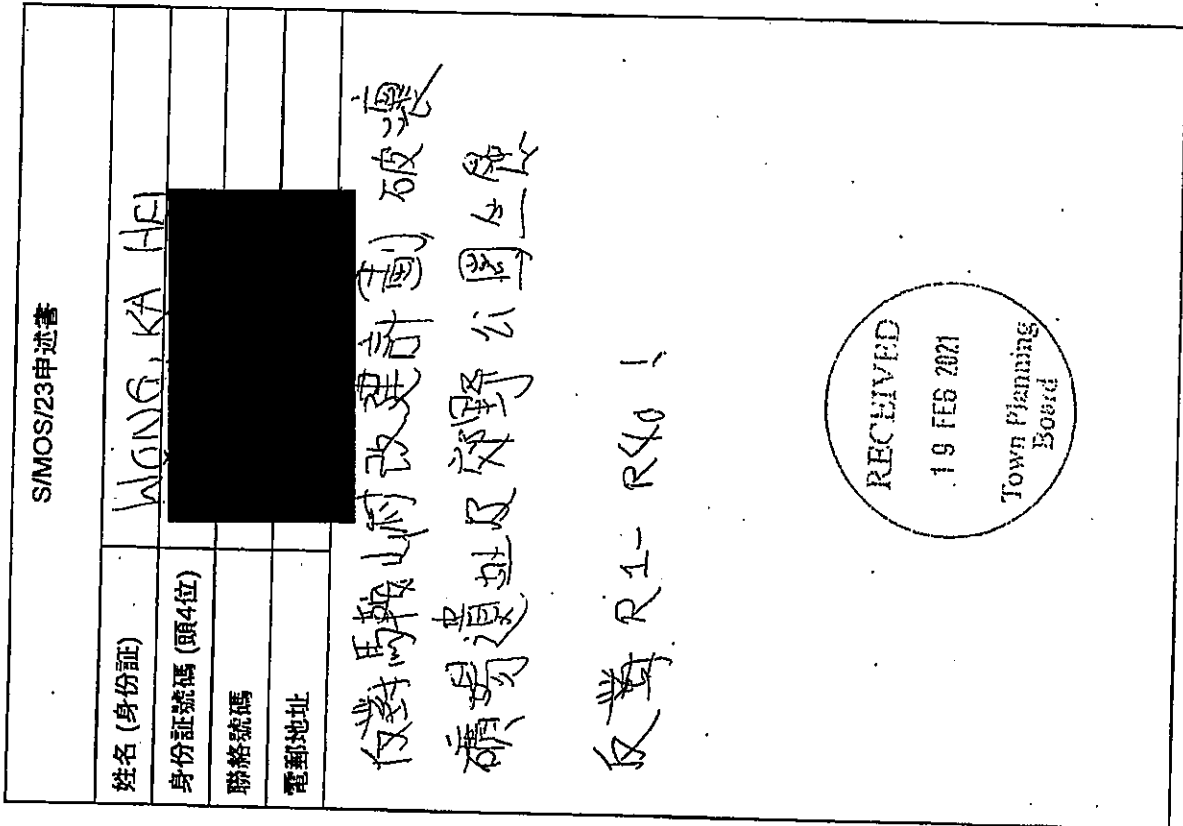 S/MOS/23申述書
姓名 (身份証) WONG, KA HEI
身份証號碼 (頭4位)
聯絡號碼
電郵地址
反對馬鞍山村改建計劃 破壞
礦場遺址及郊野公園生態
反對 R1- R40 !
RECEIVED
19 FEB 2021
Town Planning
Board